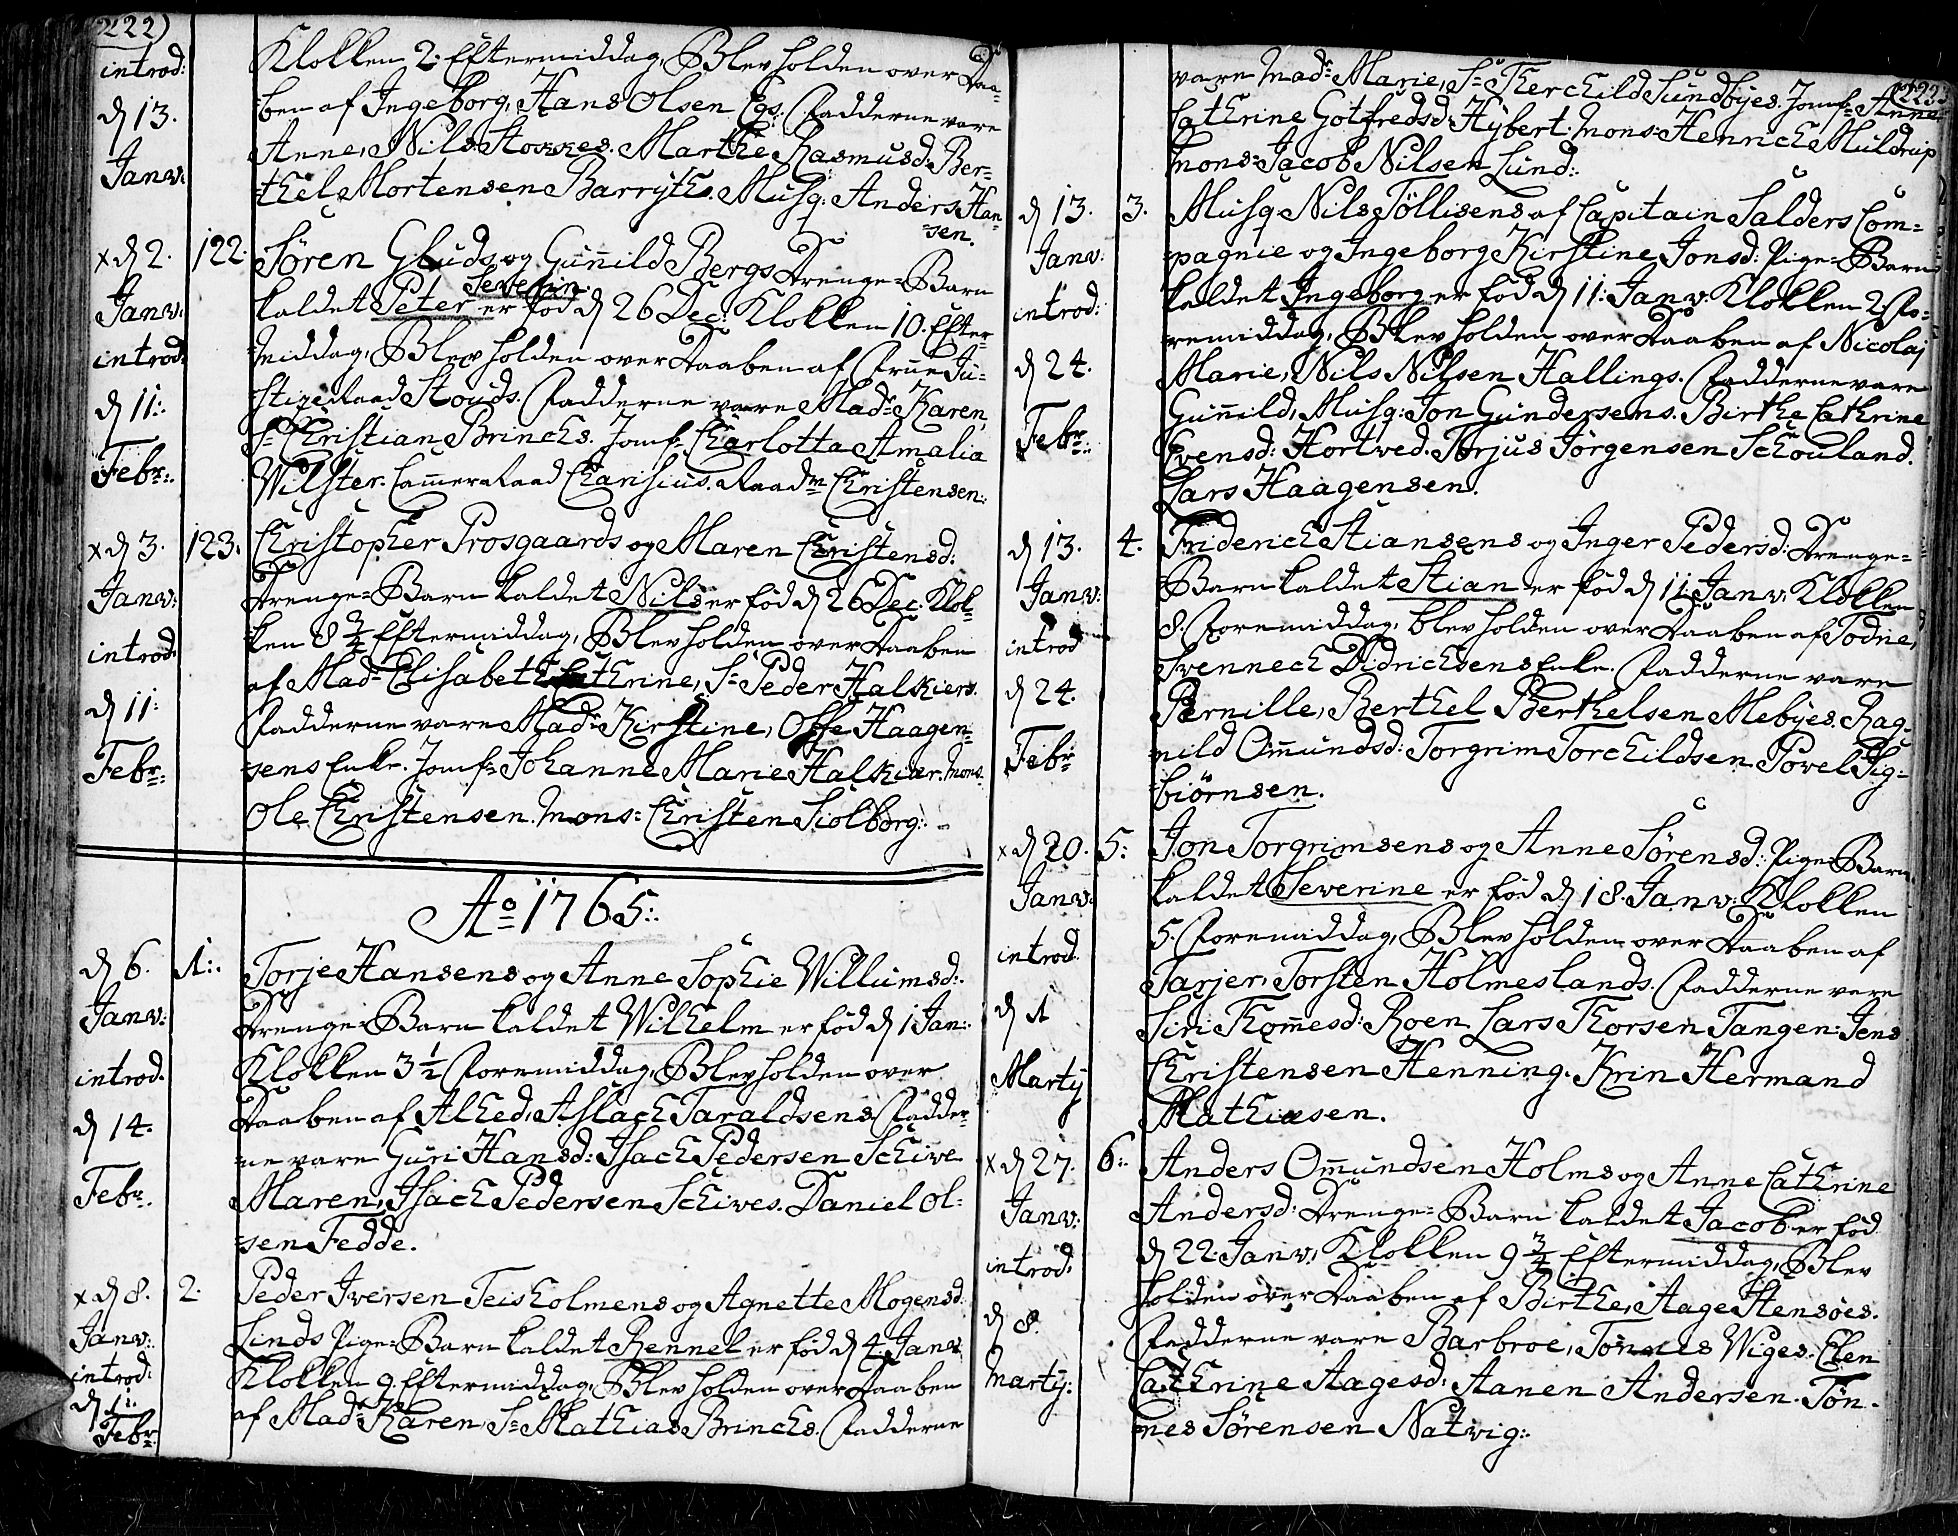 222)
introd:
d 13.
Janv:
Klokken 2. Eftermiddag, Blev holden over Daa-
ben af Ingeborg, Hans Olsen Egs. Fadderne vare
Anne, Nils Marthe Rasmusd: Ber-
thel Mortensen Barryths. Musq: Anders Han-
sen.
x d 2. 122.
Janv:
introd:
d 11:
Febr:
Søren Gluds og Guñild Bergs Drenge-Barn
Severin
kaldet Peter er fød d 26 Dec: Klokken 10. Efter-
middag, Blev holden over Daaben af Frue Ju-
stizeRaad Stouds. Fadderne vare Mad: Karen,
Sr Christian Brinchs. Jomf: Charlotta Amalia
Wilster. Cam̃erRaad Charisius. Raadm Christensen:
x d 3. 123.
Janv:
introd:
d 11:
Febr:
Christopher Prosgaards og Maren Christensd:
Drenge-Barn kaldet Nils er fød d 26 Dec. Klok-
ken 8 3/4 Eftermiddag, Blev holden over Daaben
af Mad: Elisabeth Cathrine, Sr Peder Halkiers.
Fadderne vare Mad: Kirstine, Offe Haagen-
sens Enke. Jomf: Johanne Marie Halkier. Mons:
Ole Christensen. Mons: Christen Siolborg:
Ao 1765:
d 6. 1:
Janv:
introd.
d 14.
Febr.
Torje Hansens og Anne Sophie Willumsd:
Drenge-Barn kaldet Wilhelm er fød d 1 Jan:
Klokken 3 1/2 Foremiddag, Blev holden over
Daaben af Alhed, Aslach Taraldsens. Fadder-
ne vare Guri Hansd: Isach Pedersen Schive
Maren, Isach Pedersen Schives. Daniel Ol-
sen Fedde.
x d 8. 2.
Janv:
introd:
d 11:
Febr:
Peder Iversen Teisholmens og Agnette Mogensd:
Linds Pige-Barn kaldet Rennel er fød d 4 Janv:
Klokken 9. Eftermiddag, Blev holden over Daaben
af Mad: Karen, Sr Mathias Brinchs. Fadderne
223
vare Mad: Marie, Sr Therchild Sundbyes. Jomf: Anne
Cathrine Gotfredsd: Hybert. Mons: Henrich Muldrup
Mons: Jacob Nilsen Lund:
d 13. 3.
Janv:
introd:
d 24.
Febr:
Musq. Nils Töllisens af Capitain Salders Com-
pagnie og Ingeborg Kirstine Jonsd: Pige-Barn
kaldet Ingeborg er fød d 11: Janv: Klokken 2. Fo-
remiddag, Blev holden over Daaben af Nicolaj
Marie, Nils Nilsen Hallings. Fadderne vare
Guñild, Musq: Jon Gundersens. Birthe Cathrine
Svensd: Hortved. Torjus Jörgensen Schouland.
Lars Haagensen.
d 13. 4.
Janv:
introd
d 24.
Febr
Friderich Stiansens og Inger Pedersd: Drenge-
Barn kaldet Stian er fød d 11. Janv: Klokken
8. Foremiddag, blev holden over Daaben af Todne,
Svennech Didrichsens Enke. Fadderne vare
Pernille, Berthel Berthelsen Mebyes. Rag-
nild Om̃undsd: Torgrim Torchildsen. Povel Sig-
biörnsen.
x d 20. 5:
Janv:
introd.
d 1
Martij
Jon Torgrimsens og Anne Sørensd: Pige-Barn
kaldet Severine er fød d 18. Janv: Klokken
5. Foremiddag, Blev holden over Daaben af
Tarjer, Torsten Holmeslands. Fadderne vare
Siri Thom̃esd: Roen. Lars Thorsen Tangen. Jens
Christensen Henning. Krin Hermand
Mathiasen.
x d 27. 6:
Janv:
introd:
d 8.
Martij:
Anders Om̃undsen Holms og Anne Cathrine
Andersd: Drenge-Barn kaldet Jacob er fød
d 22. Janv: Klokken 9 3/4 Eftermiddag, Blev
holden over Daaben af Birthe, Aage Stensøes.
Fadderne vare Barbroe, Tönnes Wiges. Elen
Cathrine Aagesd: Aanen Andersen. Tön-
nes Sørensen Natvig: